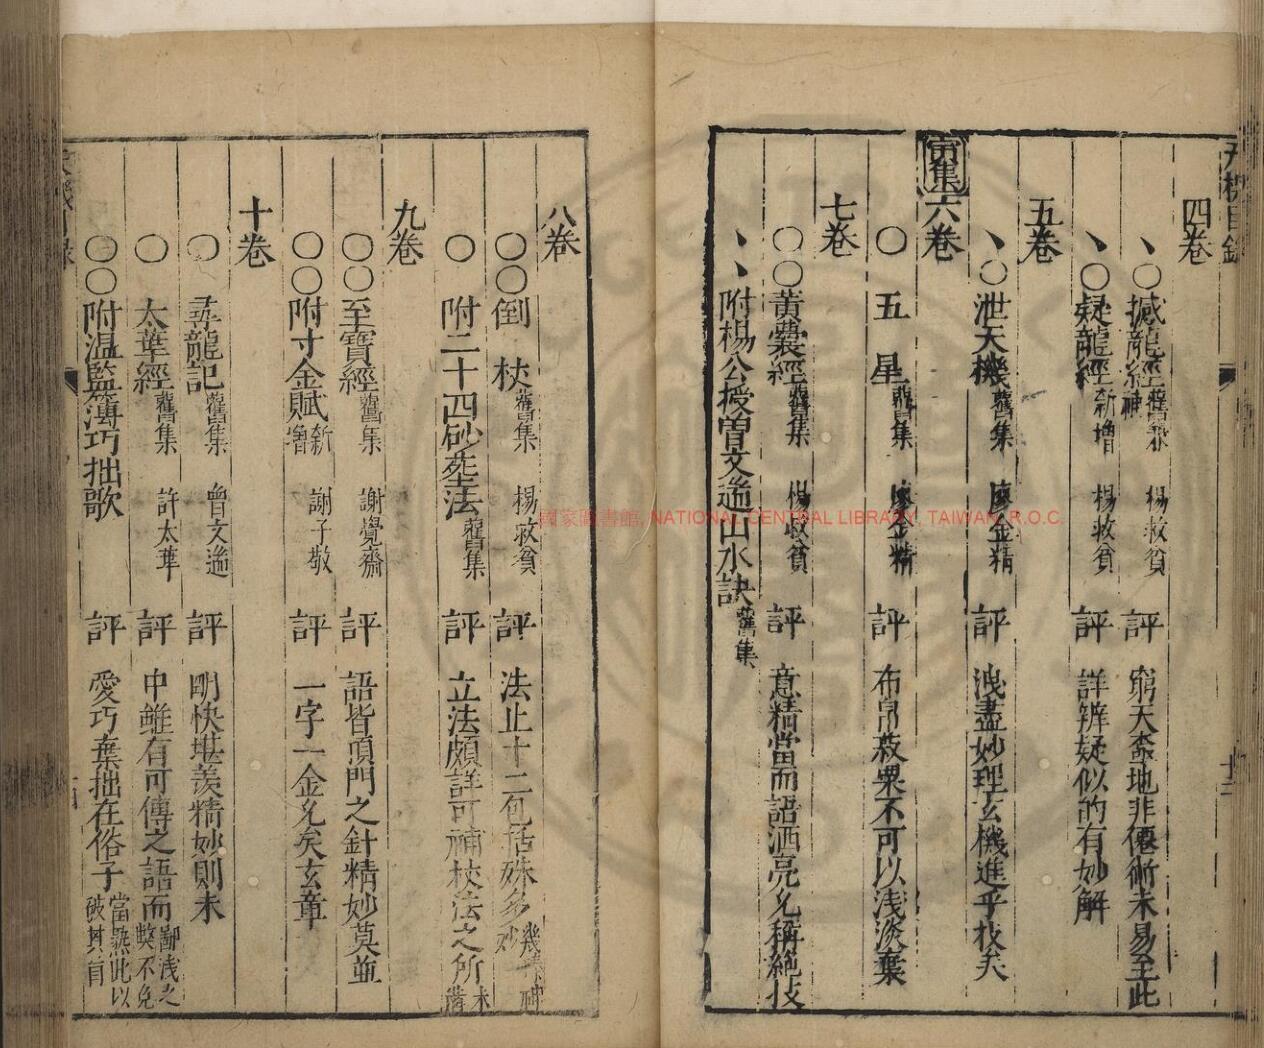 四卷
、○撼龍經 舊本 神 楊救貧 評 窮天盡地非僊術未易至此
、○疑龍經 新增 楊救貧 評 詳辨疑似的有妙解
五卷
、○泄天機 舊集 廖金精 評 洩盡妙理玄機進乎技矣
六卷
○五星 舊集 廖金精 評 布帛菽粟不可以淺淡棄
七卷
○○黃囊經 舊集 楊救貧 評 意精當而語洒亮允稱絕技
、、附楊公授曾文辿山水訣 舊集
八卷
○○倒杖 舊集 楊救貧 評 法止十二包括殊多妙
○附二十四砂葬法 舊集 評 立法頗詳可補杖法之所未備
九卷
○○至寶經 舊集 謝覺齋 評 語皆頂門之針精妙莫並
○○附寸金賦 新增 謝子敬 評 一字一金允矣玄章
十卷
○尋龍記 舊集 曾文辿 評 明快堪羨精妙則未
○太華經 舊集 許太華 評 中雖有可傳之語而鄙淺之獘不免
○○附溫監簿巧拙歌 評 愛巧棄拙在俗子當熟此以破其盲
國家圖書館, NATIONAL CENTRAL LIBRARY, TAIWAN, R.O.C.